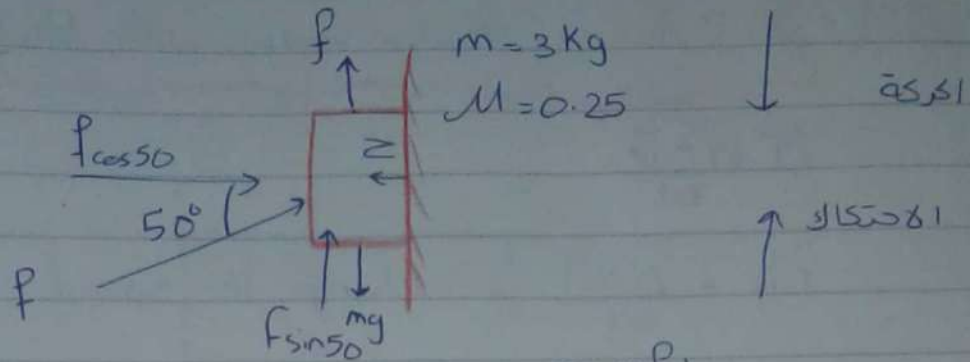 f
m = 3 Kg
M = 0.25
الحركة
fcos50
N
50°
الاحتكاك
f
mg
Fsin50